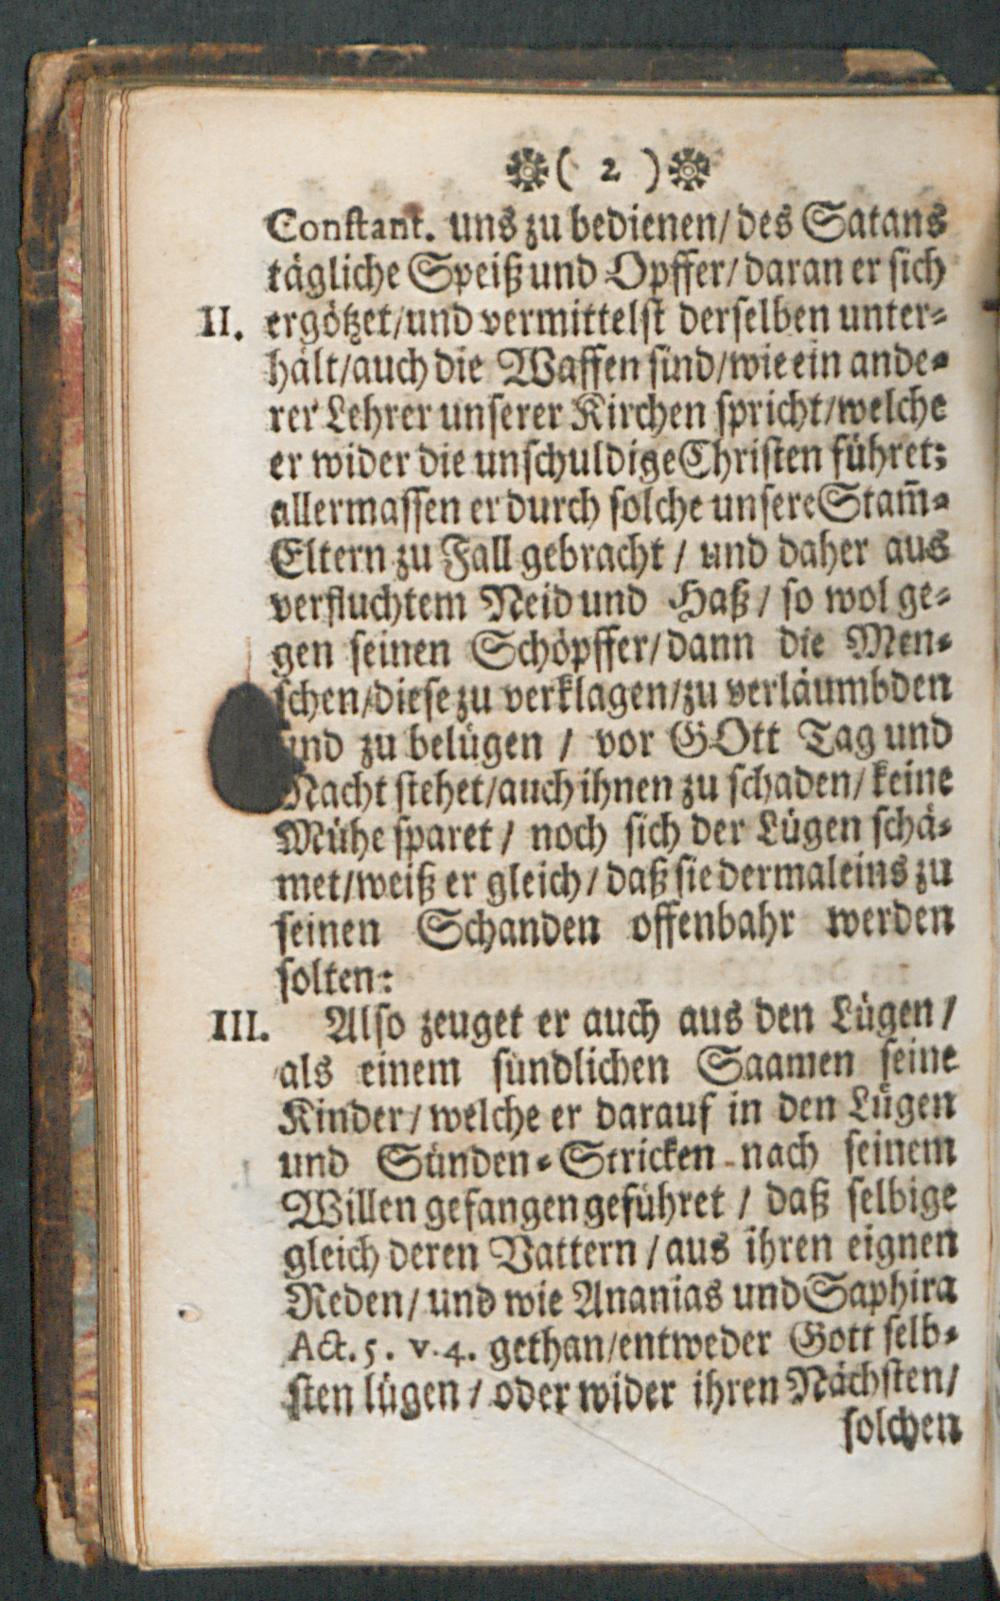 ❁( 2 )❁
Constant. uns zu bedienen/ des Satans
tägliche Speiß und Opffer/ daran er sich
II. ergötzet/ und vermittelst derselben unter-
hält/ auch die Waffen sind/ wie ein ande-
rer Lehrer unserer Kirchen spricht/ welche
er wider die unschuldige Christen führet;
allermassen er durch solche unsere Stam̃-
Eltern zu Fall gebracht / und daher aus
verfluchtem Neid und Haß / so wol ge-
gen seinen Schöpffer/ dann die Men-
schen/ diese zu verklagen/ zu verläumbden
und zu belügen / vor GOtt Tag und
Nacht stehet/ auch ihnen zu schaden/ keine
Mühe sparet / noch sich der Lügen schä-
met/ weiß er gleich / daß sie dermaleins zu
seinen Schanden offenbahr werden
solten:
III. Also zeuget er auch aus den Lügen /
als einem sündlichen Saamen seine
Kinder / welche er darauf in den Lügen
und Sünden-Stricken nach seinem
Willen gefangen geführet / daß selbige
gleich deren Vattern / aus ihren eignen
Reden/ und wie Ananias und Saphira
Act. 5. v. 4. gethan/ entweder Gott selb-
sten lügen / oder wider ihren Nächsten/
solchen